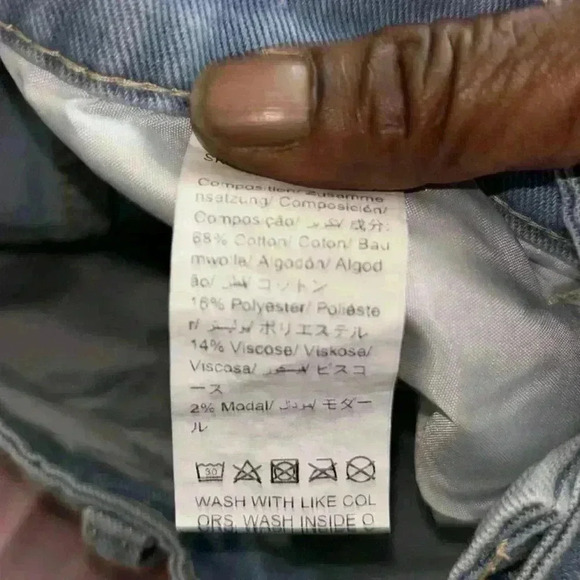 Composition/ Zusamme
nsetzung/ Composición/
Composição/ 成分:
68% Cotton/ Coton/ Bau
mwolle/ Algodón/ Algod
ão/ コットン
16% Polyester/ Poliéste
r/ ポリエステル
14% Viscose/ Viskose/
Viscosa/ ビスコ
ース
2% Modal/ モダー
ル
30
WASH WITH LIKE COL
ORS, WASH INSIDE O